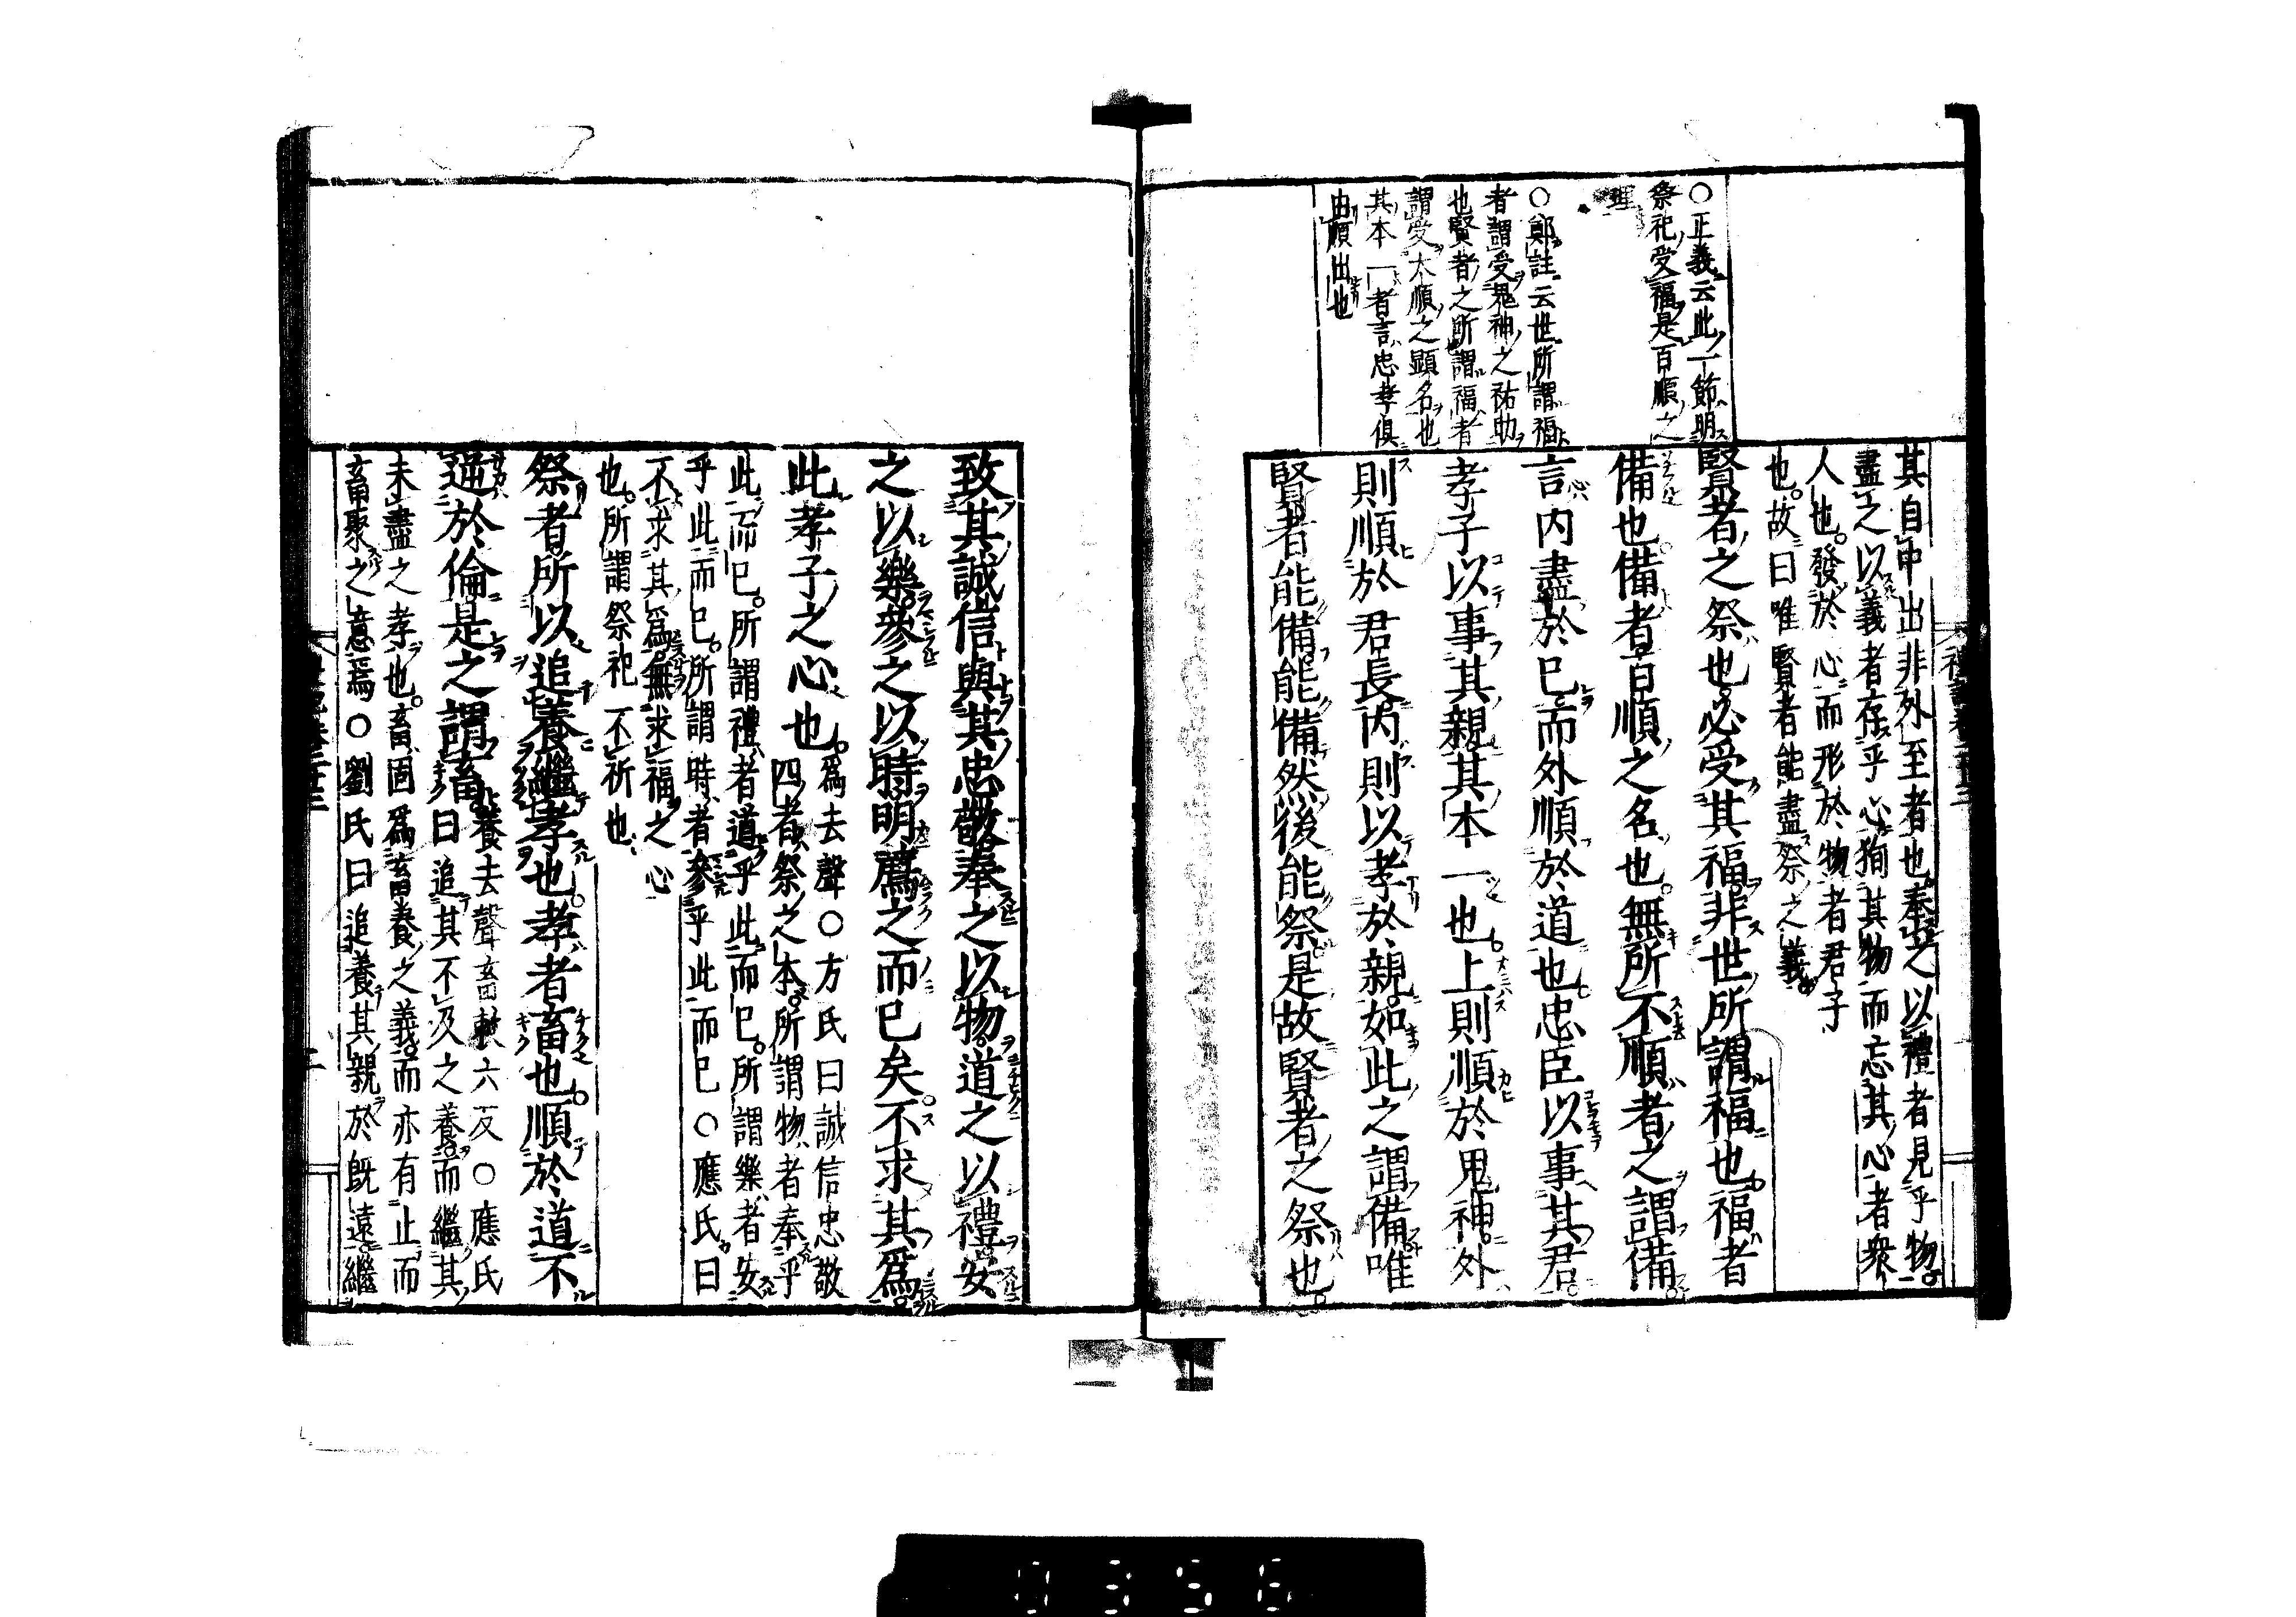 ○正義云此一節明
祭祀受福是百順之
理
○鄭註云世所謂福
者謂受鬼神之祐助
也賢者之所謂福者
謂受大順之顯名也
其本一者言忠孝俱
由順出也
其自中出非外至者也奉之以禮者見乎物
盡之以義者存乎心徇其物而忘其心者衆
人也發於心而形於物者君子
也故曰唯賢者能盡祭之義
賢者之祭也必受其福非世所謂福也福者
備也備者百順之名也無所不順者之謂備
言内盡於已而外順於道也忠臣以事其君
孝子以事其親其本一也上則順於鬼神外
則順於君長内則以孝於親如此之謂備唯
賢者能備能備然後能祭是故賢者之祭也
致其誠信與其忠敬奉之以物道之以禮安
之以樂參之以時明薦之而已矣不求其爲
此孝子之心也
爲去聲○方氏曰誠信忠敬
四者祭之本所謂物者奉乎
此而已所謂禮者道乎此而已所謂樂者安
乎此而已所謂時者參乎此而已○應氏曰
不求其爲無求福之心
也所謂祭祀不祈也
祭者所以追養繼孝也孝者畜也順於道不
逆於倫是之謂畜
養去聲畜敕六反○應氏
曰追其不及之養而繼其
未盡之孝也畜固爲畜養之義而亦有止而
畜聚之意焉○劉氏曰追養其親於既遠繼